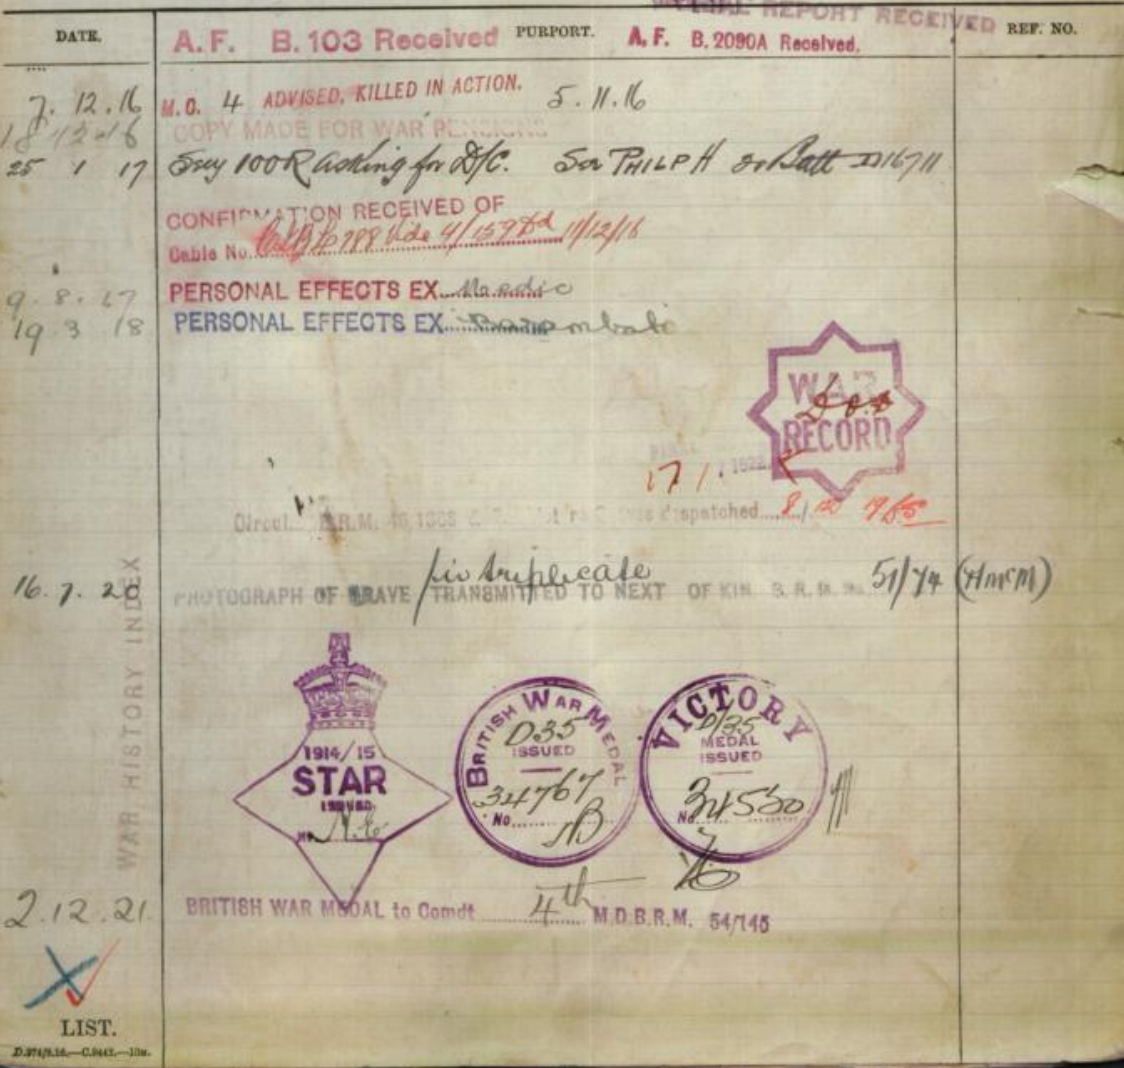 REPORT RECEIVED
DATE.
A. F. B. 103 Received PURPORT. A. F. B. 2090A Received.
REF. NO.
7. 12. 16 M.C. 4 ADVISED, KILLED IN ACTION. 5. 11. 16
18 12 16 COPY MADE FOR WAR PENSIONS
25 1 17 asking for D/C. PHILP H
CONFIRMATION RECEIVED OF
Cable No. 4/159 11/12/16
9. 8. 17 PERSONAL EFFECTS EX
19 3 18 PERSONAL EFFECTS EX Barambah
WAR
RECORD
17 / 1922
B.R.M. despatched 8/
16. 7. 20 PHOTOGRAPH OF GRAVE / in triplicate TRANSMITTED TO NEXT OF KIN B.R.M. 51/74 (HMcM)
WAR HISTORY INDEX
1914/15
STAR
ISSUED
No. N.E
BRITISH WAR MEDAL
D35
ISSUED
34767
No.
VICTORY
D/35
MEDAL
ISSUED
No. 34530
2. 12. 21. BRITISH WAR MEDAL to Comdt 4th M.D.B.R.M. 54/145
LIST.
D.974/9.16.—C.9442.—10m.